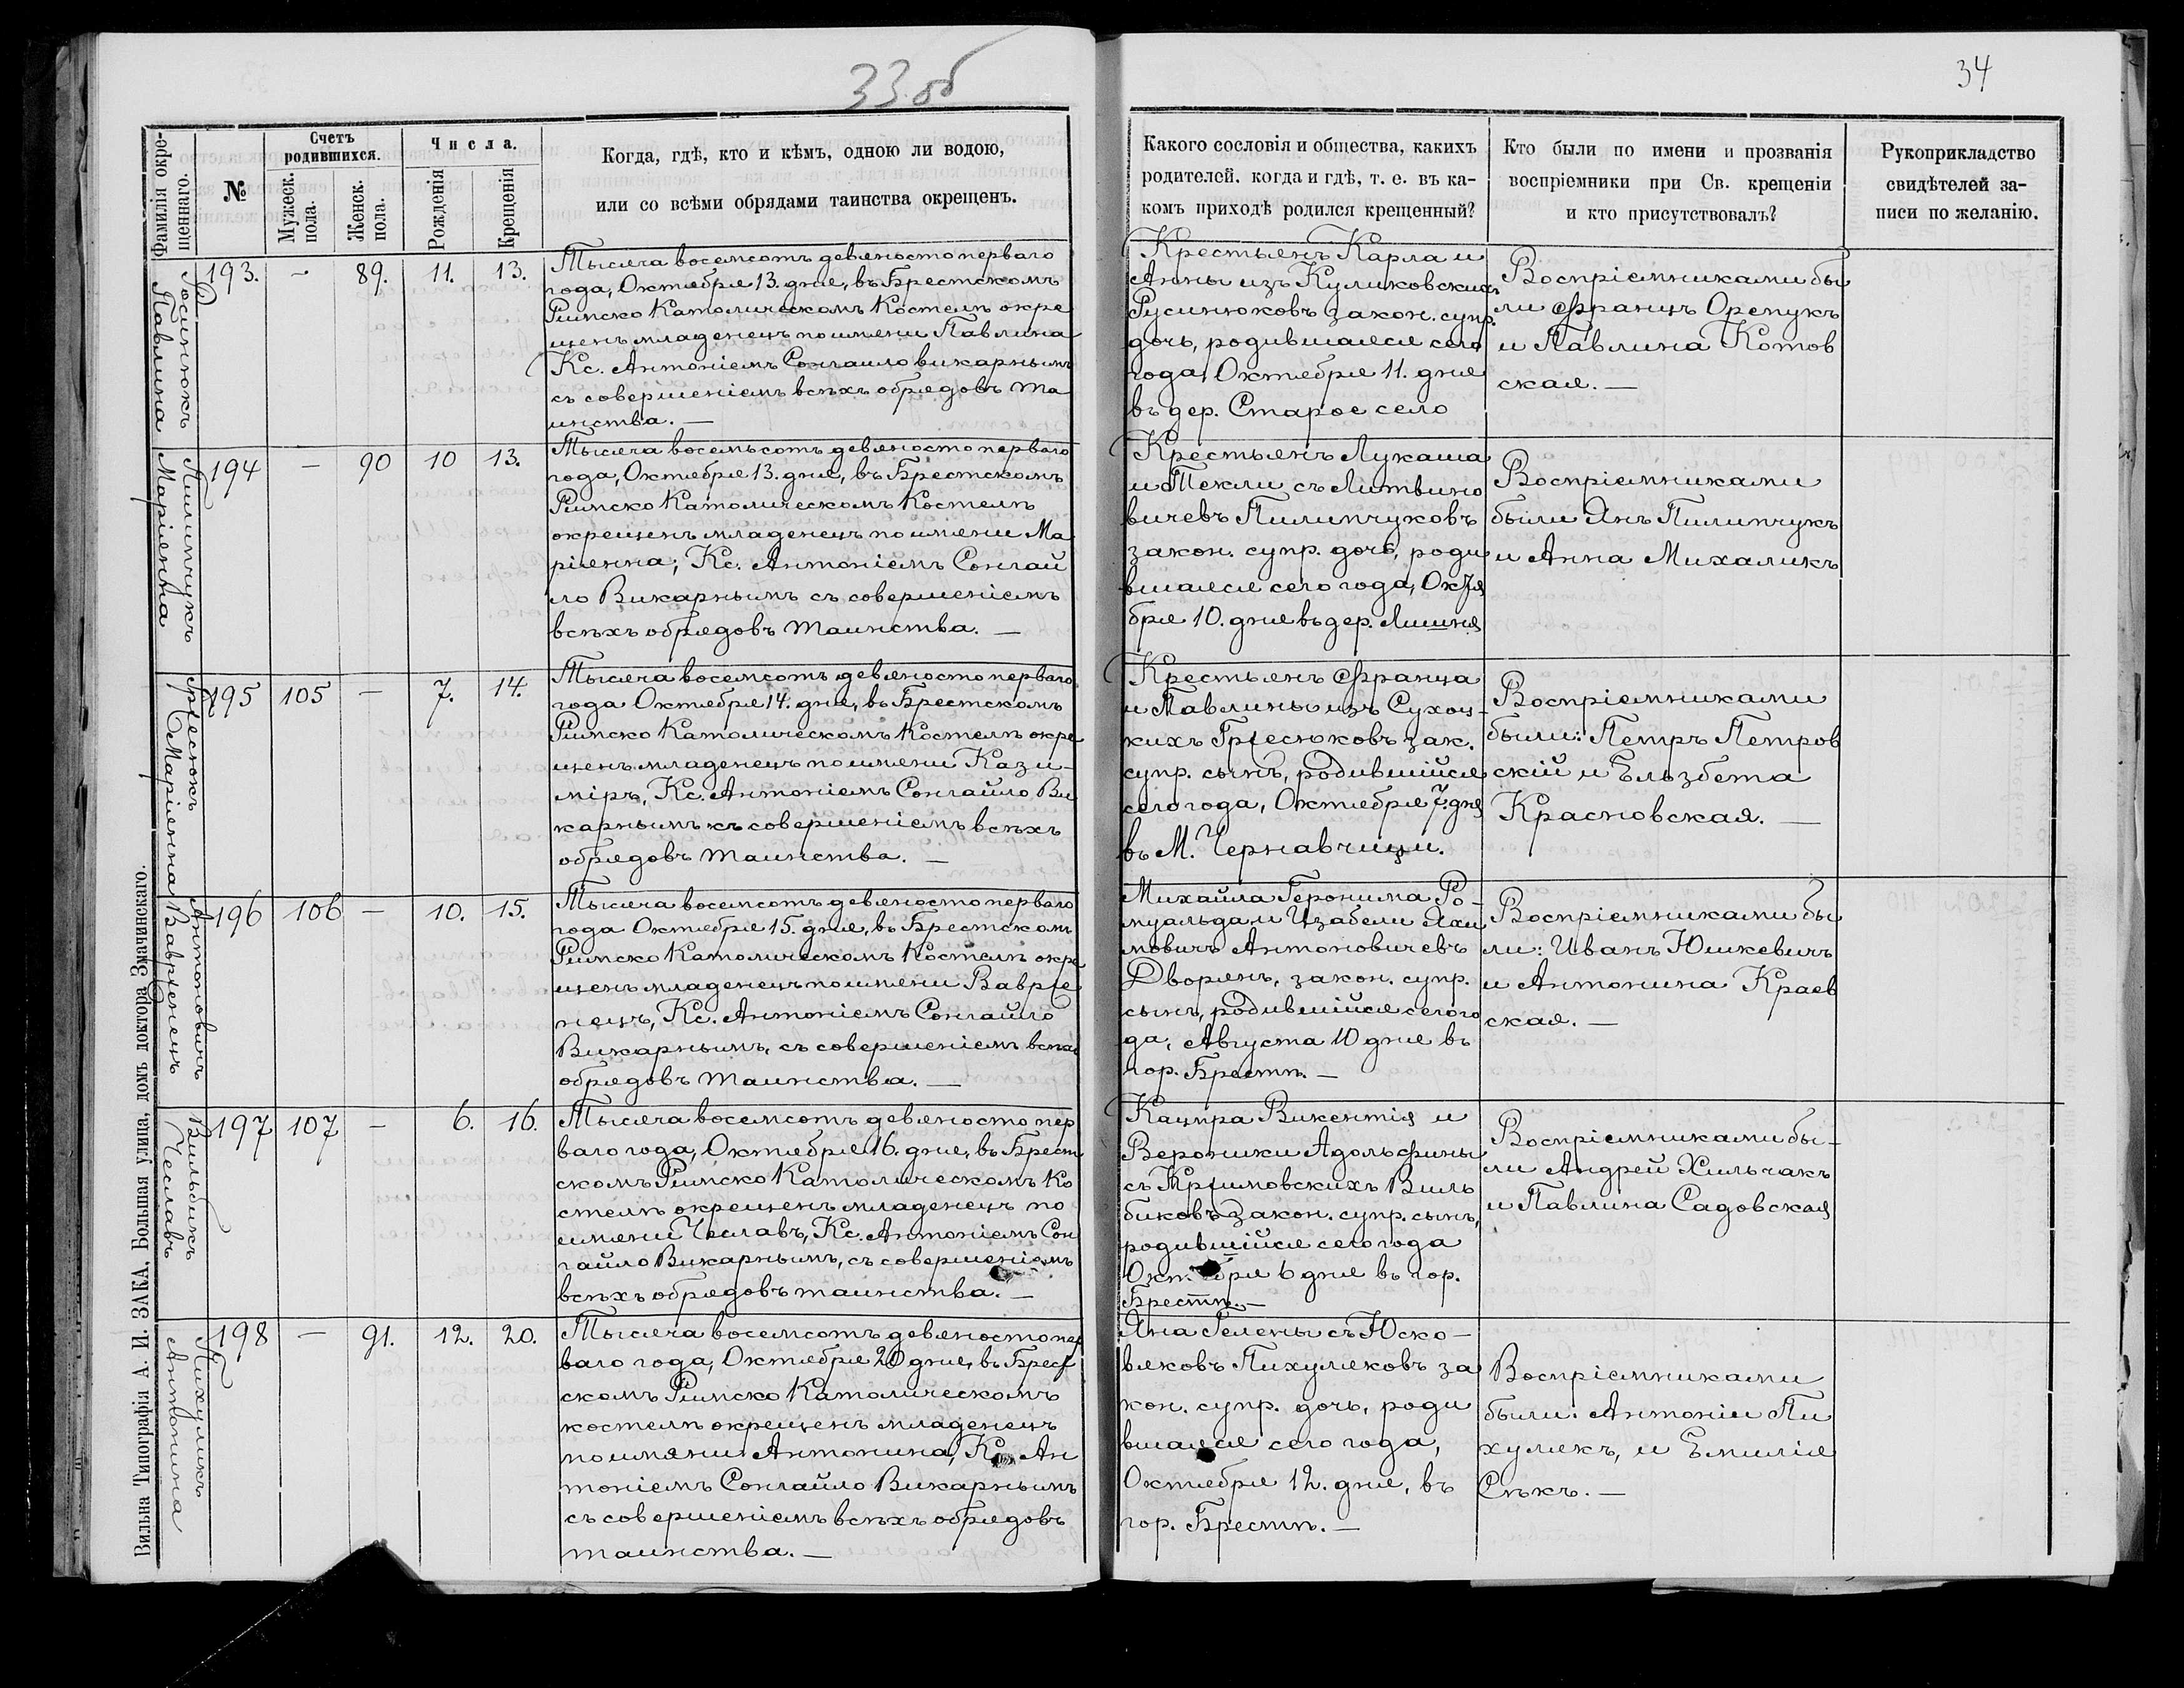 33 об
34
Фамилія окрещеннаго.
№
Счетъ родившихся.
Мужеск. пола.
Женск. пола.
Числа.
Рожденія
Крещенія
Когда, гдѣ, кто и кѣмъ, одною ли водою,
или со всѣми обрядами таинства окрещенъ.
Какого сословія и общества, какихъ
родителей. когда и гдѣ, т. е. въ ка-
комъ приходѣ родился крещенный?
Кто были по имени и прозванія
воспріемники при Св. крещеніи
и кто присутствовалъ?
Рукоприкладство
свидѣтелей за-
писи по желанію.
Русинюкъ
Павлина
193. — 89. 11. 13.
Тысяча восемсотъ девяносто перваго
года, Октября 13. дня, въ Брестскомъ
Римско Католическомъ Костелѣ окре
щенъ младенецъ по имени Павлина
Кс. Антоніемъ Сонгаило викарнымъ
съ совершеніемъ всѣхъ обрядовъ та
инства. —
Крестьянъ Карла и
Анны изъ Куликовскихъ
Русинюковъ закон. супр.
дочь, родившаяся сего
года, Октября 11. дня
въ дер. Старое село
Воспріемниками бы
ли Францъ Орепукъ
и Павлина Котов
ская. —
Пилипчукъ
Маріянна
194 — 90 10 13.
Тысяча восемьсотъ девяносто перваго
года, Октября 13. дня, въ Брестскомъ
Римско Католическомъ Костелѣ
окрещенъ младенецъ по имени Ма
ріянна; Кс. Антоніемъ Сонгай
ло Викарнымъ съ совершеніемъ
всѣхъ обрядовъ таинства. —
Крестьянъ Лукаша
и Текли съ Литвино
вичевъ Пилипчуковъ
закон. супр. дочь, роди
вшаяся сего года, Октя
бря 10. дня въ дер. Лишня
Воспріемниками
были Янъ Пилипчукъ
и Анна Михаликъ
Гржесюкъ
Маріянна
195 105 — 7. 14.
Тысяча восемсотъ девяносто перваго
года Октября 14. дня, въ Брестскомъ
Римско Католическомъ Костелѣ окре
щенъ младенецъ по имени Кази-
міръ, Кс. Антоніемъ Сонгайло Ви
карнымъ къ совершеніемъ всѣхъ
обрядовъ таинства. —
Крестьянъ Франца
и Павлины изъ Сухоц-
кихъ Гржесюковъ зак.
супр. сынъ, родившійся
сего года, Октября 7. дня
въ М. Чернавчицы.
Воспріемниками
были: Петръ Петров
скій и Ельзбета
Красновская. —
Антоновичъ
Ваврженецъ
196 106 — 10. 15.
Тысяча восемсотъ девяносто перваго
года Октября 15. дня, въ Брестскомъ
Римско Католическомъ Костелѣ окре
щенъ младенецъ по имени Ваврже
нецъ, Кс. Антоніемъ Сонгайло
Викарнымъ, съ совершеніемъ всѣхъ
обрядовъ таинства. —
Михайла Геронима Ро-
муальда и Изабели Яхи
мовичъ Антоновичевъ
Дворянъ, закон. супр.
сынъ, родившійся сего го
да, Августа 10 дня въ
гор. Брестѣ. —
Воспріемниками бы
ли: Иванъ Юшкевичъ
и Антонина Краев
ская. —
Вильбикъ
Чеславъ
197 107 — 6. 16.
Тысяча восемсотъ девяносто пер
ваго года, Октября 16. дня, въ Брест
скомъ Римско Католическомъ Ко
стелѣ окрещенъ младенецъ по
имени Чеславъ, Кс. Антоніемъ Сон
гайло Викарнымъ, съ совершеніемъ
всѣхъ обрядовъ таинства. —
Кацпра Викентія и
Вероники Адольфины
съ Кржимовскихъ Виль
биковъ закон. супр. сынъ,
родившійся сего года
Октября 6 дня въ гор.
Брестѣ. —
Воспріемниками бы-
ли Андрей Хильчакъ
и Павлина Садовская
Пихулякъ
Антонина
198 — 91. 12. 20.
Тысяча восемсотъ девяносто пер
ваго года, Октября 20 дня, въ Брест
скомъ Римско Католическомъ
костелѣ окрещенъ младенецъ
по имяни Антонина, Кс. Ан
тоніемъ Сонгайло Викарнымъ
съ совершеніемъ всѣхъ обрядовъ
таинства. —
Яна Гелены съ Юско-
вяковъ Пихуляковъ за
кон. супр. дочь, роди
вшаяся сего года,
Октября 12. дня, въ
гор. Брестѣ. —
Воспріемниками
были: Антоніи Пи
хулякъ, и Емилія
Сѣкъ. —
Вильна Типографія А. И. ЗАКА, Большая улица, домъ доктора Змачинскаго.